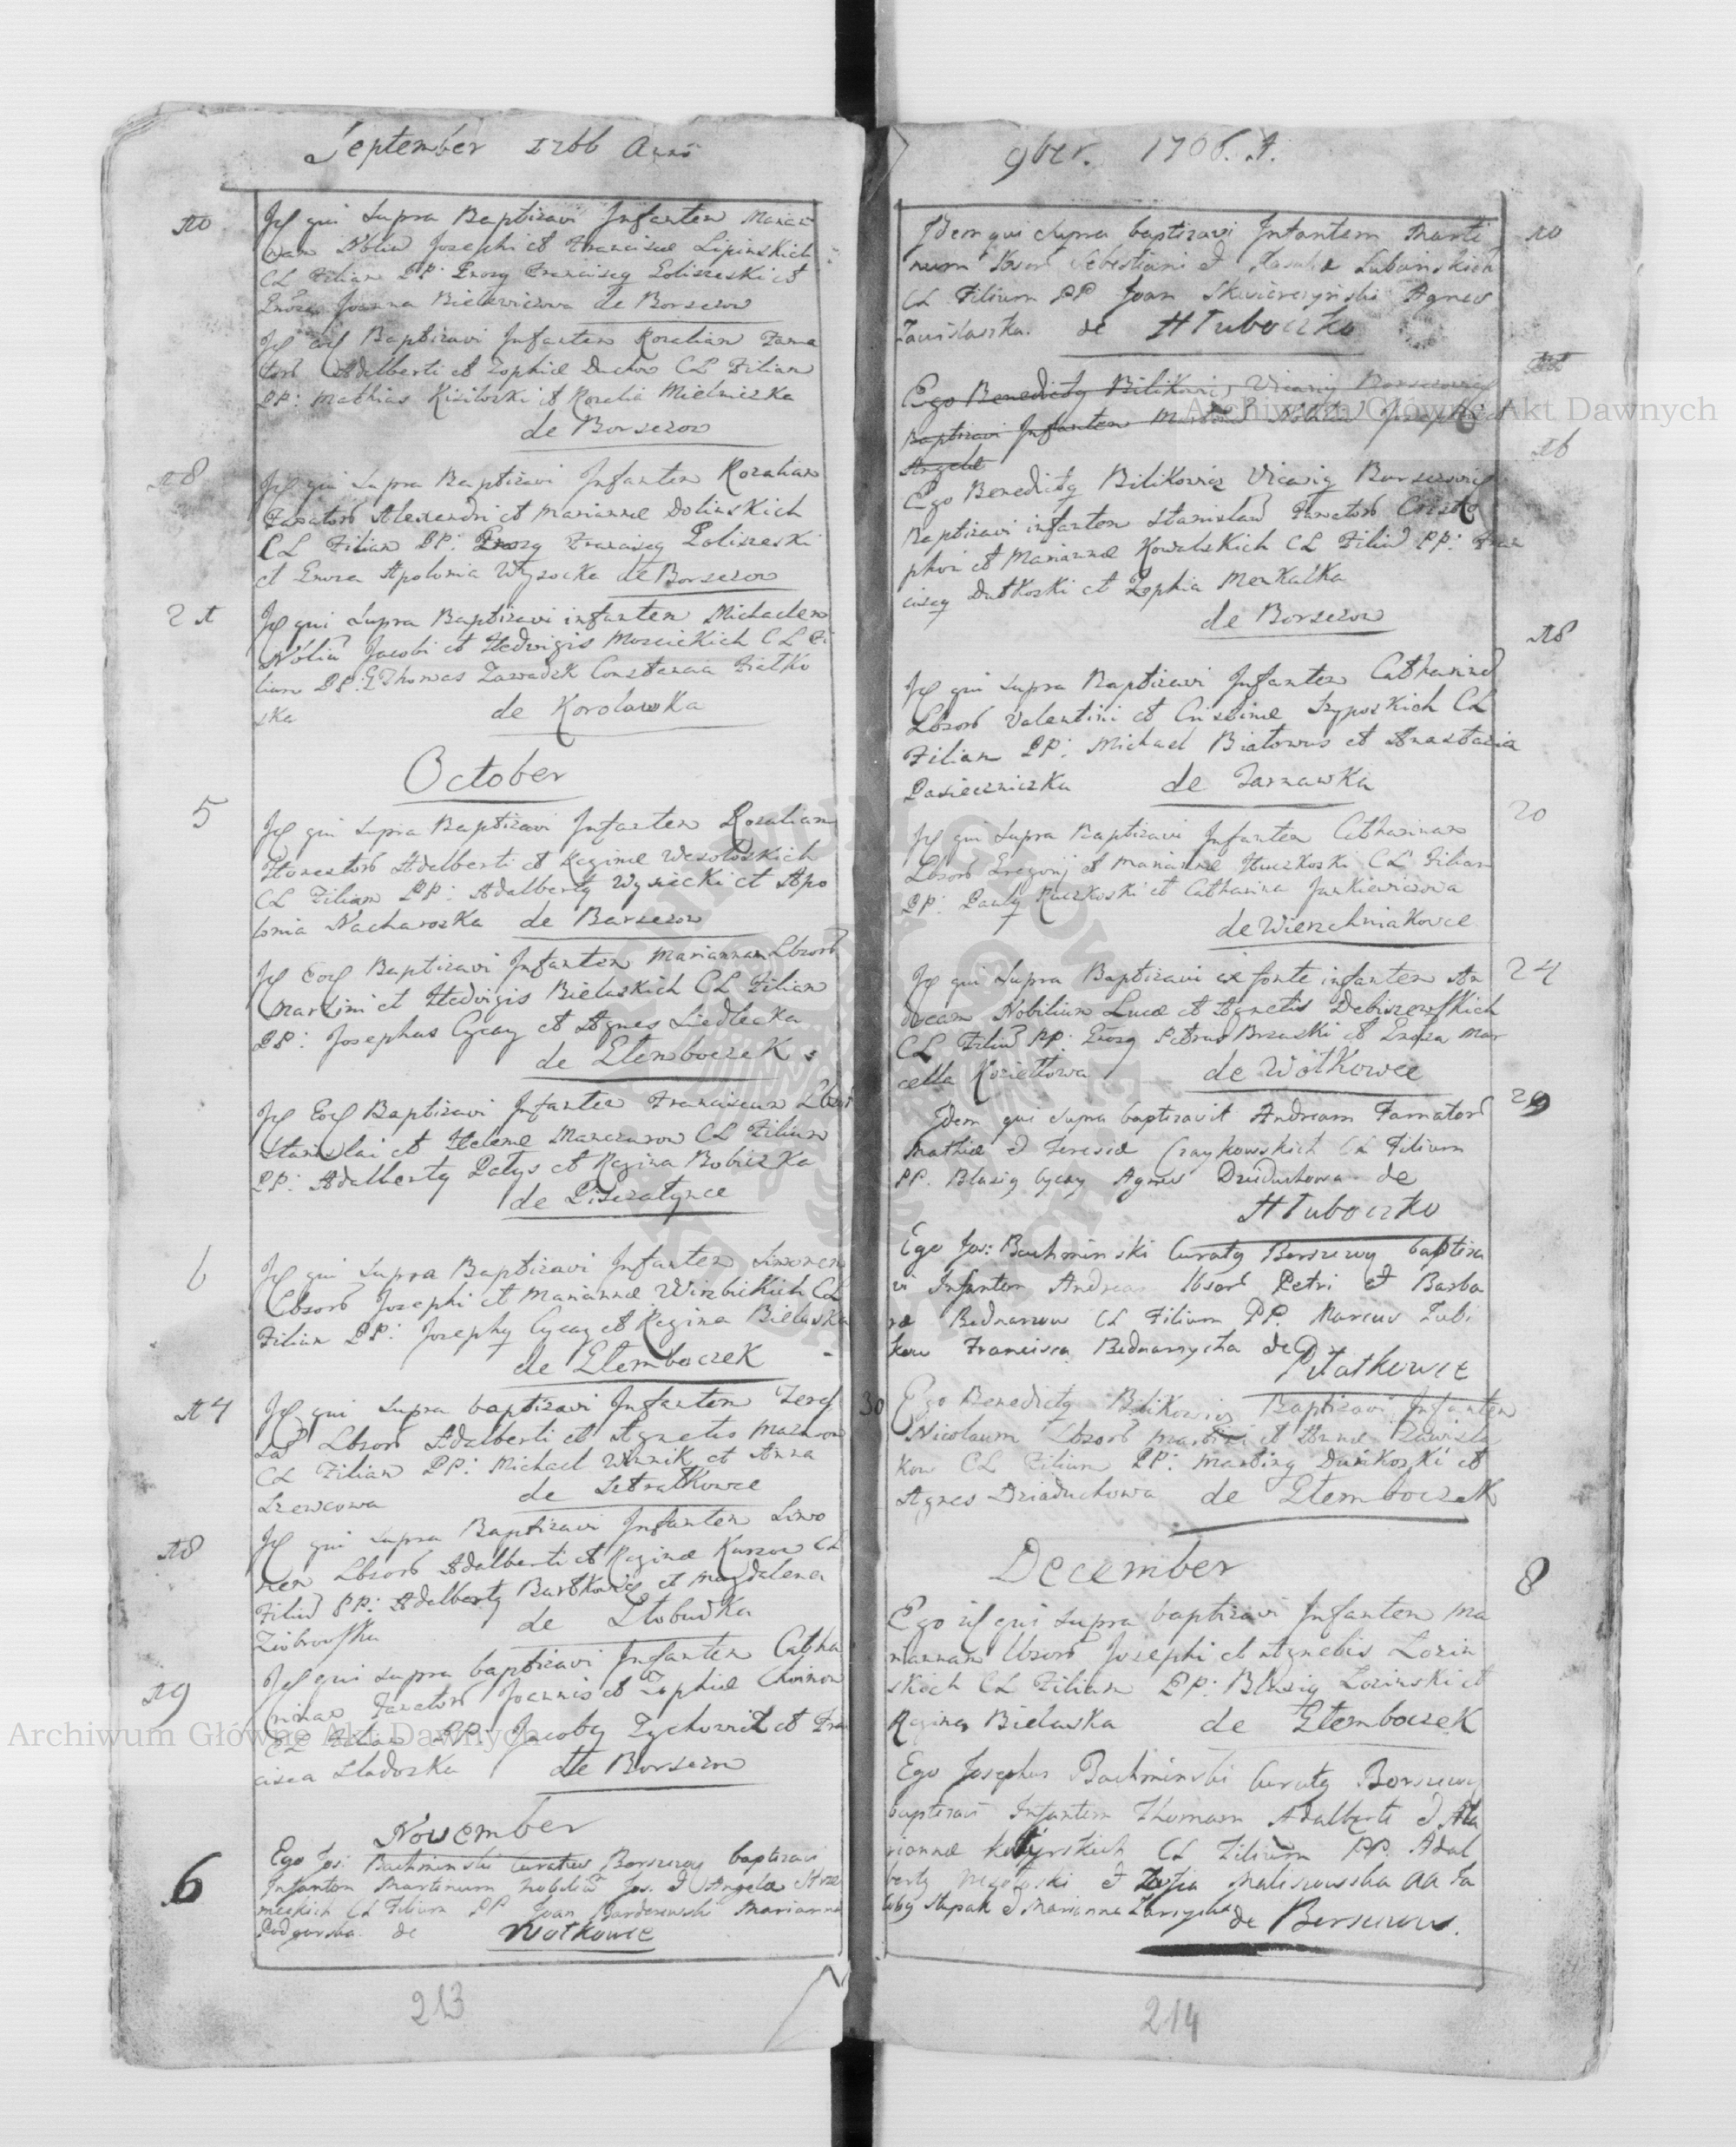 September 1766 Anno
10
Id qui Supra Baptizavi Infantem Marian
nam Nbliũ Josephi et Francisce Lipinskich
CL Filiam PP: Gnosg Franciscg Goliszeski et
Gnosa Joanna Bielewiczowa de Borszczow
Id eod Baptizavi Infantem Rozaliam Fama
torũ Adalberti et Zophiæ Duchow CL Filiam
PP: Mathias Kisiloski et Rozalia Mielniczka
de Borszczow
18
Id qui Supra Baptizavi Infantem Rozaliam
Famatorũ Alexandri et Mariannæ Dolinskich
CL Filiam PP: Gnosg Franciscg Goliszeski
et Gnosa Apolonia Wysocka de Borszczow
21
Id qui Supra Baptizavi infantem Michaelem
Nbliũ Jacobi et Hedvigis Moscickich CL Fi
lium PP: G Thomas Zawadzk Constancia Fiatko
ska de Korolowka
October
5
Id qui Supra Baptizavi Infantem Rozaliam
Honestorũ Adalberti et Reginæ Wesoloskich
CL Filiam PP: Adalbertg Wysocki et Apo
lonia Nacharoska de Borszczow
Id Eod Baptizavi Infantem Mariannam Lbsorũ
Martini et Hedvigis Bielaskich CL Filiam
PP: Josephus Cycay et Agnes Siedlecka
de Glemboczek
Id Eod Baptizavi Infantem Franciscum Lbsorũ
Stanislai et Helenæ Manczurow CL Filium
PP: Adalbertg Patys et Regina Bobiczka
de Piszczatynce
6
Id qui Supra Baptizavi Infantem Simonem
Lbsorũ Josephi et Mariannæ Wirzbickich CL
Filium PP: Josephg Cycay et Regina Bielaska
de Glemboczek
14
Id qui Supra baptizavi Infantem Teref
Lbsorũ Adalberti et Agnetis Mazurow
CL Filiam PP: Michael Winnik et Anna
Szewcowa de Strzalkowce
18
Id qui Supra Baptizavi Infantem Simo
nem Lbsorũ Adalberti et Reginæ Kurzow CL
Filiũ PP: Adalbertg Bartkowicz et Magdalena
Ziobrowska de Slobudka
19
Id qui Supra baptizavi Infantem Catha
rinam Famatorũ Joannis et Zophiæ Choinow
CL Filiam PP: Jacobg Zychowicz et Fran
cisca Sladoska de Borszczow
November
6
Ego Jos: Bachminski Curatus Borszczoy baptizavi
Infantem Martinum Nobiliũ Jos. et Angelæ Strze
meckich CL Filium PP Joan Bardzewski Marianna
Podgorska de Wolkowce
213
9ber. 1766. A.
10
Idem qui Supra baptizavi Infantem Marti
num Lbsorũ Sebastiani et Rosaliæ Lubinskich
CL Filium PP Joan Skwierczynski Agnes
Zawislaczka. de Hluboczko
Ego Benedictg Bilikowicz Vicarig Borszczovien
Baptizavi Infantem Martinũ Nobiliũ Josephi et
Angelæ
16
Ego Benedictg Bilikowicz Vicarig Borszczovien
Baptizavi infantem Stanislaũ Famatorũ Cristo
phori et Mariannæ Kowalskich CL Filiũ PP: Fran
ciscg Dutkoski et Zophia Menkalka
de Borszczow
18
Id qui Supra Baptizavi Infantem Catharinã
Lbsorũ Valentini et Cristinæ Szyposkich CL
Filiam PP: Michael Biatowus et Anastazia
Pasieczniczka de Zarnawka
20
Id qui Supra Baptizavi Infantem Catharinam
Lbsorũ Gregorij et Mariannæ Huczkoski CL Filiam
PP: Paulg Ruczkoski et Catharina Jankiewiczowa
de Wierzchniakowce
24
Id qui Supra Baptizavi ex fonte infantem An
dream Nobilium Lucæ et Agnetis Debiszewskich
CL Filiũ PP: Gnosg Petrus Brzuski et Gnosa Mar
cella Koziettowa de Wolkowce
29
Idem qui Supra baptizavit Andream Famatorũ
Mathiæ et Teresiæ Czaykowskich CL Filium
PP. Blasig Cycay Agnes Dziaduchowa de
Hluboczko
Ego Jos: Bachminski Curatg Borszczoy baptiza
vi Infantem Andream lbsorũ Petri et Barba
ræ Bednarzow CL Filium PP. Marcus Zubi
kow Francisca Bednarzycha de
Pilatkowce
30
Ego Benedictg Bilikowicz Baptizavi Infantem
Nicolaum Lbsorũ Martini et Annæ Zawisla
kow CL Filium PP: Marting Dunikoski et
Agnes Dziaduchowa de Glemboczek
December
8
Ego id qui Supra baptizavi Infantem Ma
riannam Lbsorũ Josephi et Agnetis Lozin
skich CL Filiam PP: Blasig Lozinski et
Regina Bielawska de Glemboczek
Ego Josephus Bachminski Curatg Borszczoy
baptizavi Infantem Thomam Adalberti et Ma
riannæ Kotyrskich CL Filium PP. Adal
bertg Wesoloski et Zofia Maliszewska AA Ja
cobg Stupak et Marianna de Borszczow.
214
Archiwum Główne Akt Dawnych
Archiwum Główne Akt Dawnych